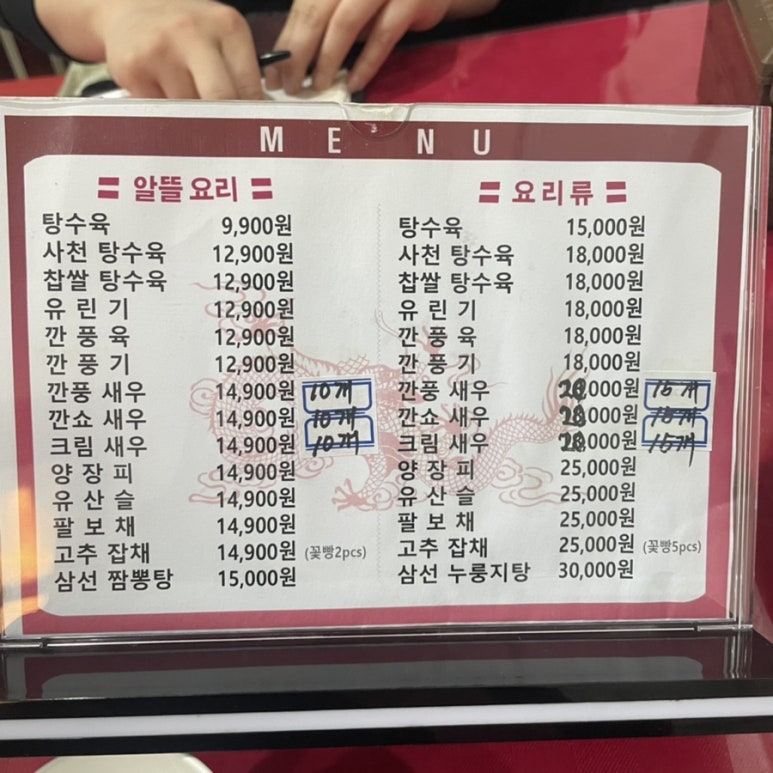 MENU
알뜰요리
탕수육 9,900원
사천 탕수육 12,900원
찹쌀 탕수육 12,900원
유린기 12,900원
깐풍육 12,900원
깐풍기 12,900원
깐풍 새우 14,900원 10개
깐쇼 새우 14,900원 10개
크림 새우 14,900원 10개
양장피 14,900원
유산슬 14,900원
팔보채 14,900원
고추 잡채 14,900원 (꽃빵2pcs)
삼선 짬뽕탕 15,000원
요리류
탕수육 15,000원
사천 탕수육 18,000원
찹쌀 탕수육 18,000원
유린기 18,000원
깐풍육 18,000원
깐풍기 18,000원
깐풍 새우 15개
깐쇼 새우 28,000원 15개
크림 새우 28,000원 15개
양장피 25,000원
유산슬 25,000원
팔보채 25,000원
고추 잡채 25,000원 (꽃빵5pcs)
삼선 누룽지탕 30,000원